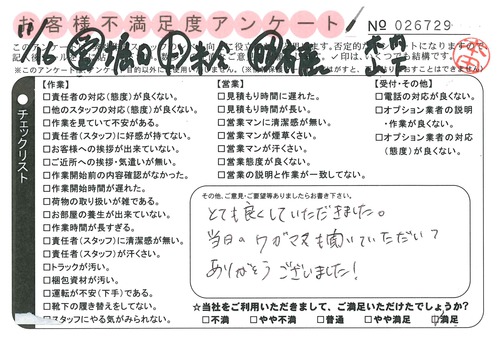 お客様不満足度アンケート
No 026729
11/6
※このアンケートは、アンケート目的以外にて使用いたしません。
チェックリスト
【作業】
□責任者の対応(態度)が良くない。
□他のスタッフの対応(態度)が良くない。
□作業を見ていて不安がある。
□責任者(スタッフ)に好感が持てない。
□お客様への挨拶が出来ていない。
□ご近所への挨拶・気遣いが無い。
□作業開始前の内容確認がなかった。
□作業開始時間が遅れた。
□荷物の取り扱いが雑である。
□お部屋の養生が出来ていない。
□作業時間が長すぎる。
□責任者(スタッフ)に清潔感が無い。
□責任者(スタッフ)が汗くさい。
□トラックが汚い。
□梱包資材が汚い。
□運転が不安(下手)である。
□靴下の履き替えをしてない。
□スタッフにやる気がみられない。
【営業】
□見積もり時間に遅れた。
□見積もり時間が長い。
□営業マンに清潔感が無い。
□営業マンが煙草くさい。
□営業マンが汗くさい。
□営業態度が良くない。
□営業の説明と作業が一致してない。
【受付・その他】
□電話の対応が良くない。
□オプション業者の説明・作業が良くない。
□オプション業者の対応(態度)が良くない。
その他、ご意見・ご要望等ありましたらお書き下さい。
とても良くしていただきました。
当日のワガママも聞いていただいて
ありがとうございました!
☆当社をご利用いただきまして、ご満足いただけたでしょうか?
□不満 □やや不満 □普通 □やや満足 □満足